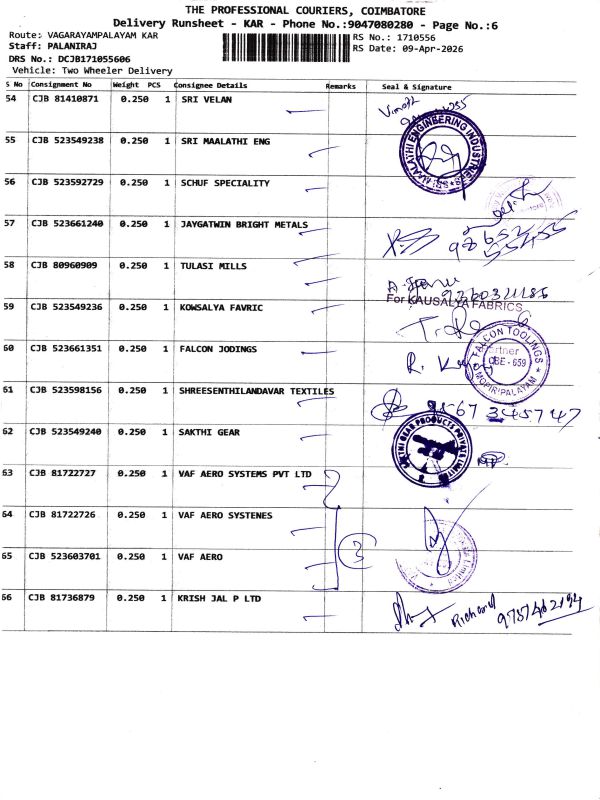 THE PROFESSIONAL COURIERS, COIMBATORE
Delivery Runsheet - KAR - Phone No.:9047080280 - Page No.:6
Route: VAGARAYAMPALAYAM KAR
RS No.: 1710556
Staff: PALANIRAJ
RS Date: 09-Apr-2026
DRS No.: DCJB171055606
Vehicle: Two Wheeler Delivery
S No Consignment No Weight PCS Consignee Details Remarks Seal & Signature
54 CJB 81410871 0.250 1 SRI VELAN
55 CJB 523549238 0.250 1 SRI MAALATHI ENG
SRI MAALATHI ENGINEERING INDUSTRIES
56 CJB 523592729 0.250 1 SCHUF SPECIALITY
57 CJB 523661240 0.250 1 JAYGATWIN BRIGHT METALS
58 CJB 80960909 0.250 1 TULASI MILLS
For KAUSALYA FABRICS
59 CJB 523549236 0.250 1 KOWSALYA FAVRIC
60 CJB 523661351 0.250 1 FALCON JODINGS
FALCON TOOLINGS
CBE - 659
MOPIRIPALAYAM
61 CJB 523598156 0.250 1 SHREESENTHILANDAVAR TEXTILES
9567 345747
62 CJB 523549240 0.250 1 SAKTHI GEAR
SAKTHI GEAR PRODUCTS PRIVATE LIMITED
63 CJB 81722727 0.250 1 VAF AERO SYSTEMS PVT LTD
64 CJB 81722726 0.250 1 VAF AERO SYSTENES
3
65 CJB 523603701 0.250 1 VAF AERO
66 CJB 81736879 0.250 1 KRISH JAL P LTD
Richard